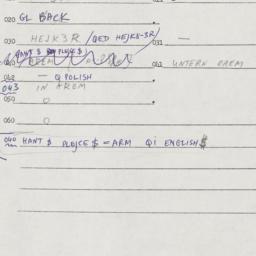 020 GL BACK
030 HEJK3R /QED HEJKS-3R/ 031 —
HANT $ PLEJCE $)
040 AREM 041 UNTERN AREM
042 — Q POLISH
043 IN AREM
050 0
060 0
040 HANT $ PLEJCE $ = ARM QI ENGLISH $